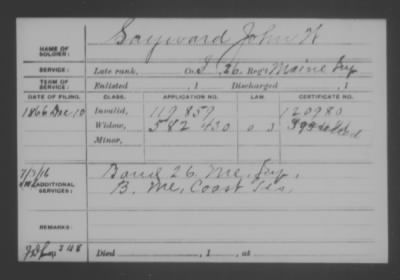 NAME OF SOLDIER: Sayward John H
SERVICE: Late rank, Co. I 26 Reg't Maine Inf
TERM OF SERVICE: Enlisted , 1 Discharged , 1
DATE OF FILING. CLASS. APPLICATION NO. LAW. CERTIFICATE NO.
1866 Dec 10 Invalid, 119859 120980
Widow, 582430 0 3
Minor,
ADDITIONAL SERVICES: Band 26 Me. Inf.
B. Me. Coast
REMARKS:
Died , 1 , at